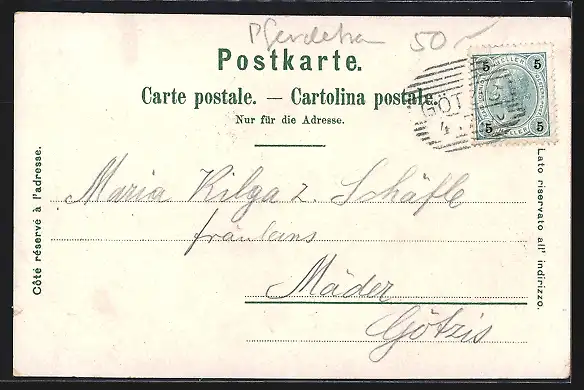 Pferdebahn 50
Postkarte.
Carte postale. — Cartolina postale.
Nur für die Adresse.
5 HELLER 5
5 HELLER 5
GÖT
4
Côté réservé à l'adresse.
Lato riservato all' indirizzo.
Maria Kilga z. Schäfle
fräulans
Mäder
Götzis